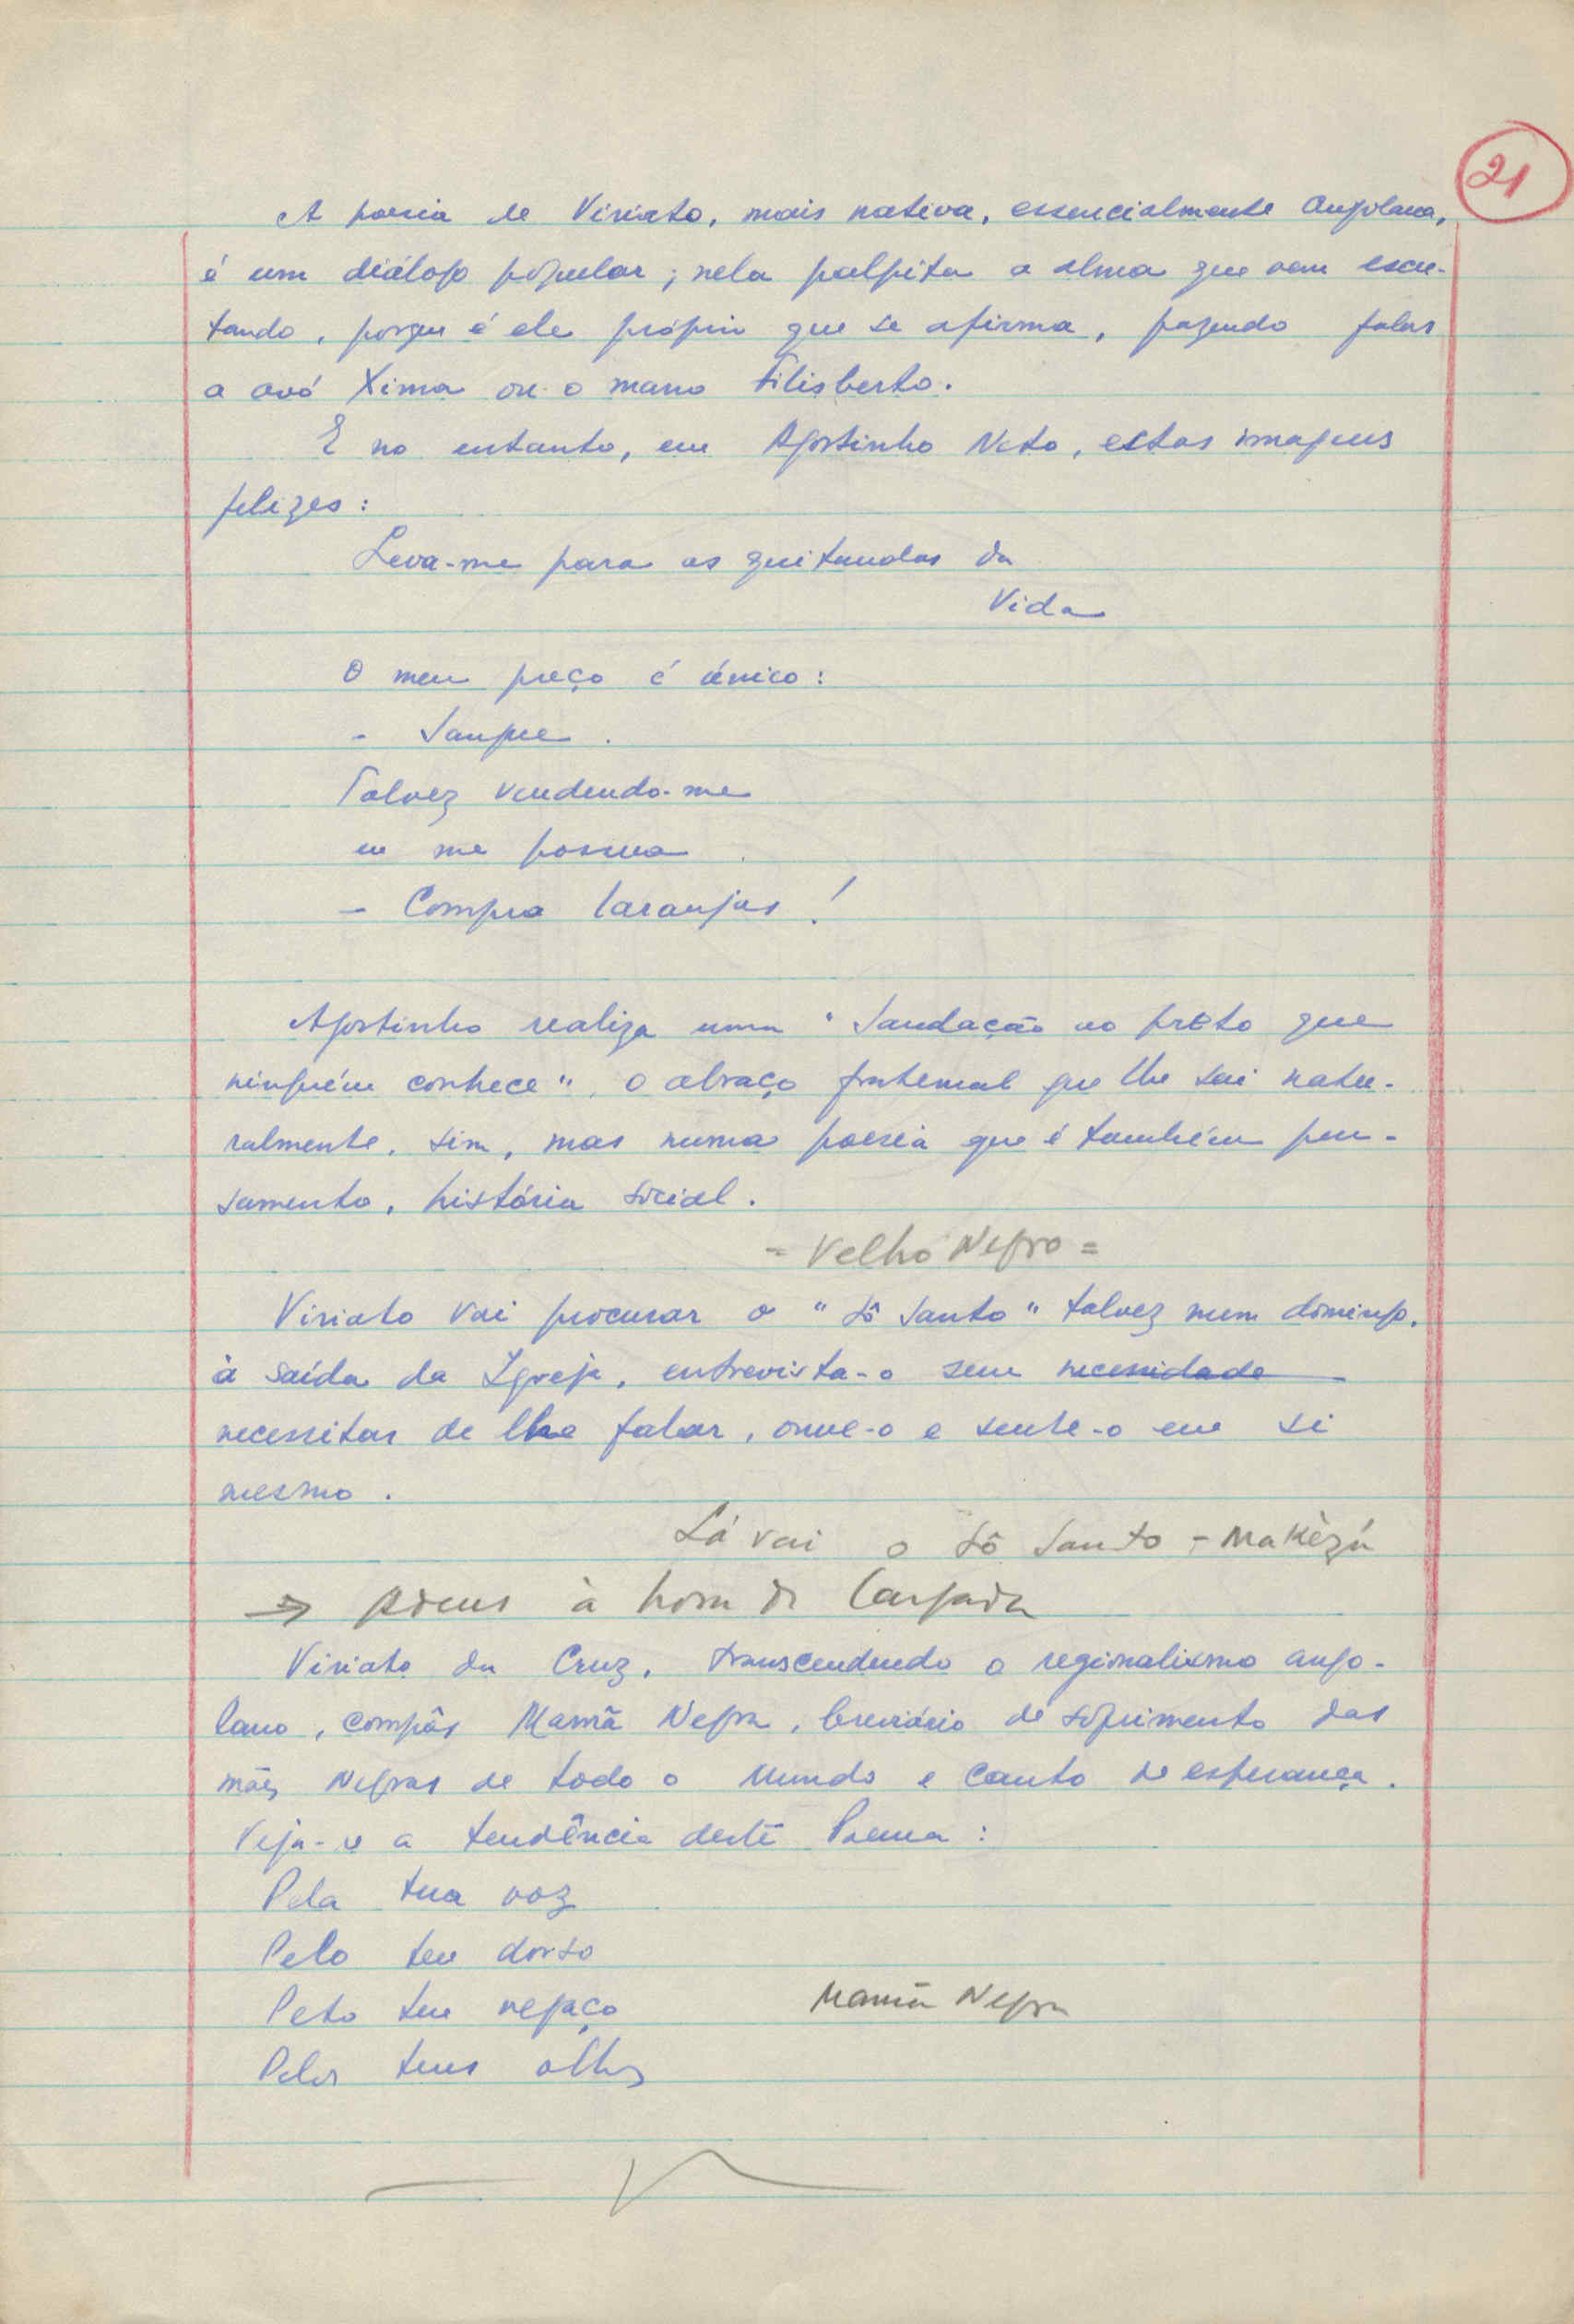 21
A poesia de Viriato, mais nativa, essencialmente Angolana,
é um diálogo popular; nela palpita a alma que vem escu-
tando, porque é ele próprio que se afirma, fazendo falar
a avó Xima ou o mano Filisberto.
E no entanto, em Agostinho Neto, estas imagens
felizes:
Leva-me para as quitandas da
Vida
O meu preço é único:
- Sangue.
Talvez vendendo-me
eu me possua
- Compra laranjas!
Agostinho realiza uma "Saudação ao preto que
ninguém conhece", o abraço fraternal que lhe sai natu-
ralmente, sim, mas numa poesia que é também pen-
samento, história social.
- Velho Negro =
Viriato vai procurar o "Sô Santo" talvez num domingo,
à saída da Igreja, entrevista-o sem necessidade
necessitar de lhe falar, ouve-o e sente-o em si
mesmo.
Lá vai o Sô Santo - Makèzú
→ Adeus à hora da Largada
Viriato da Cruz, transcendendo o regionalismo ango-
lano, compôs Mamã Negra, breviário de sofrimento das
mães Negras de todo o Mundo e canto de esperança.
Veja-se a tendência deste Poema:
Pela tua voz
Pelo teu dorso
Pelo teu regaço
Pelos teus olhos
Mamã Negra